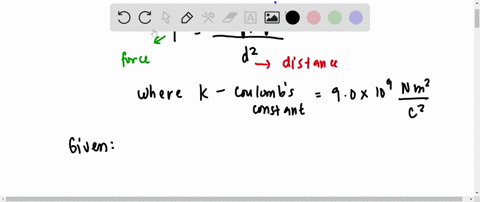 force
d²
→ distance
where K - coulomb's constant = 9.0 × 10⁹ Nm²/C²
Given: